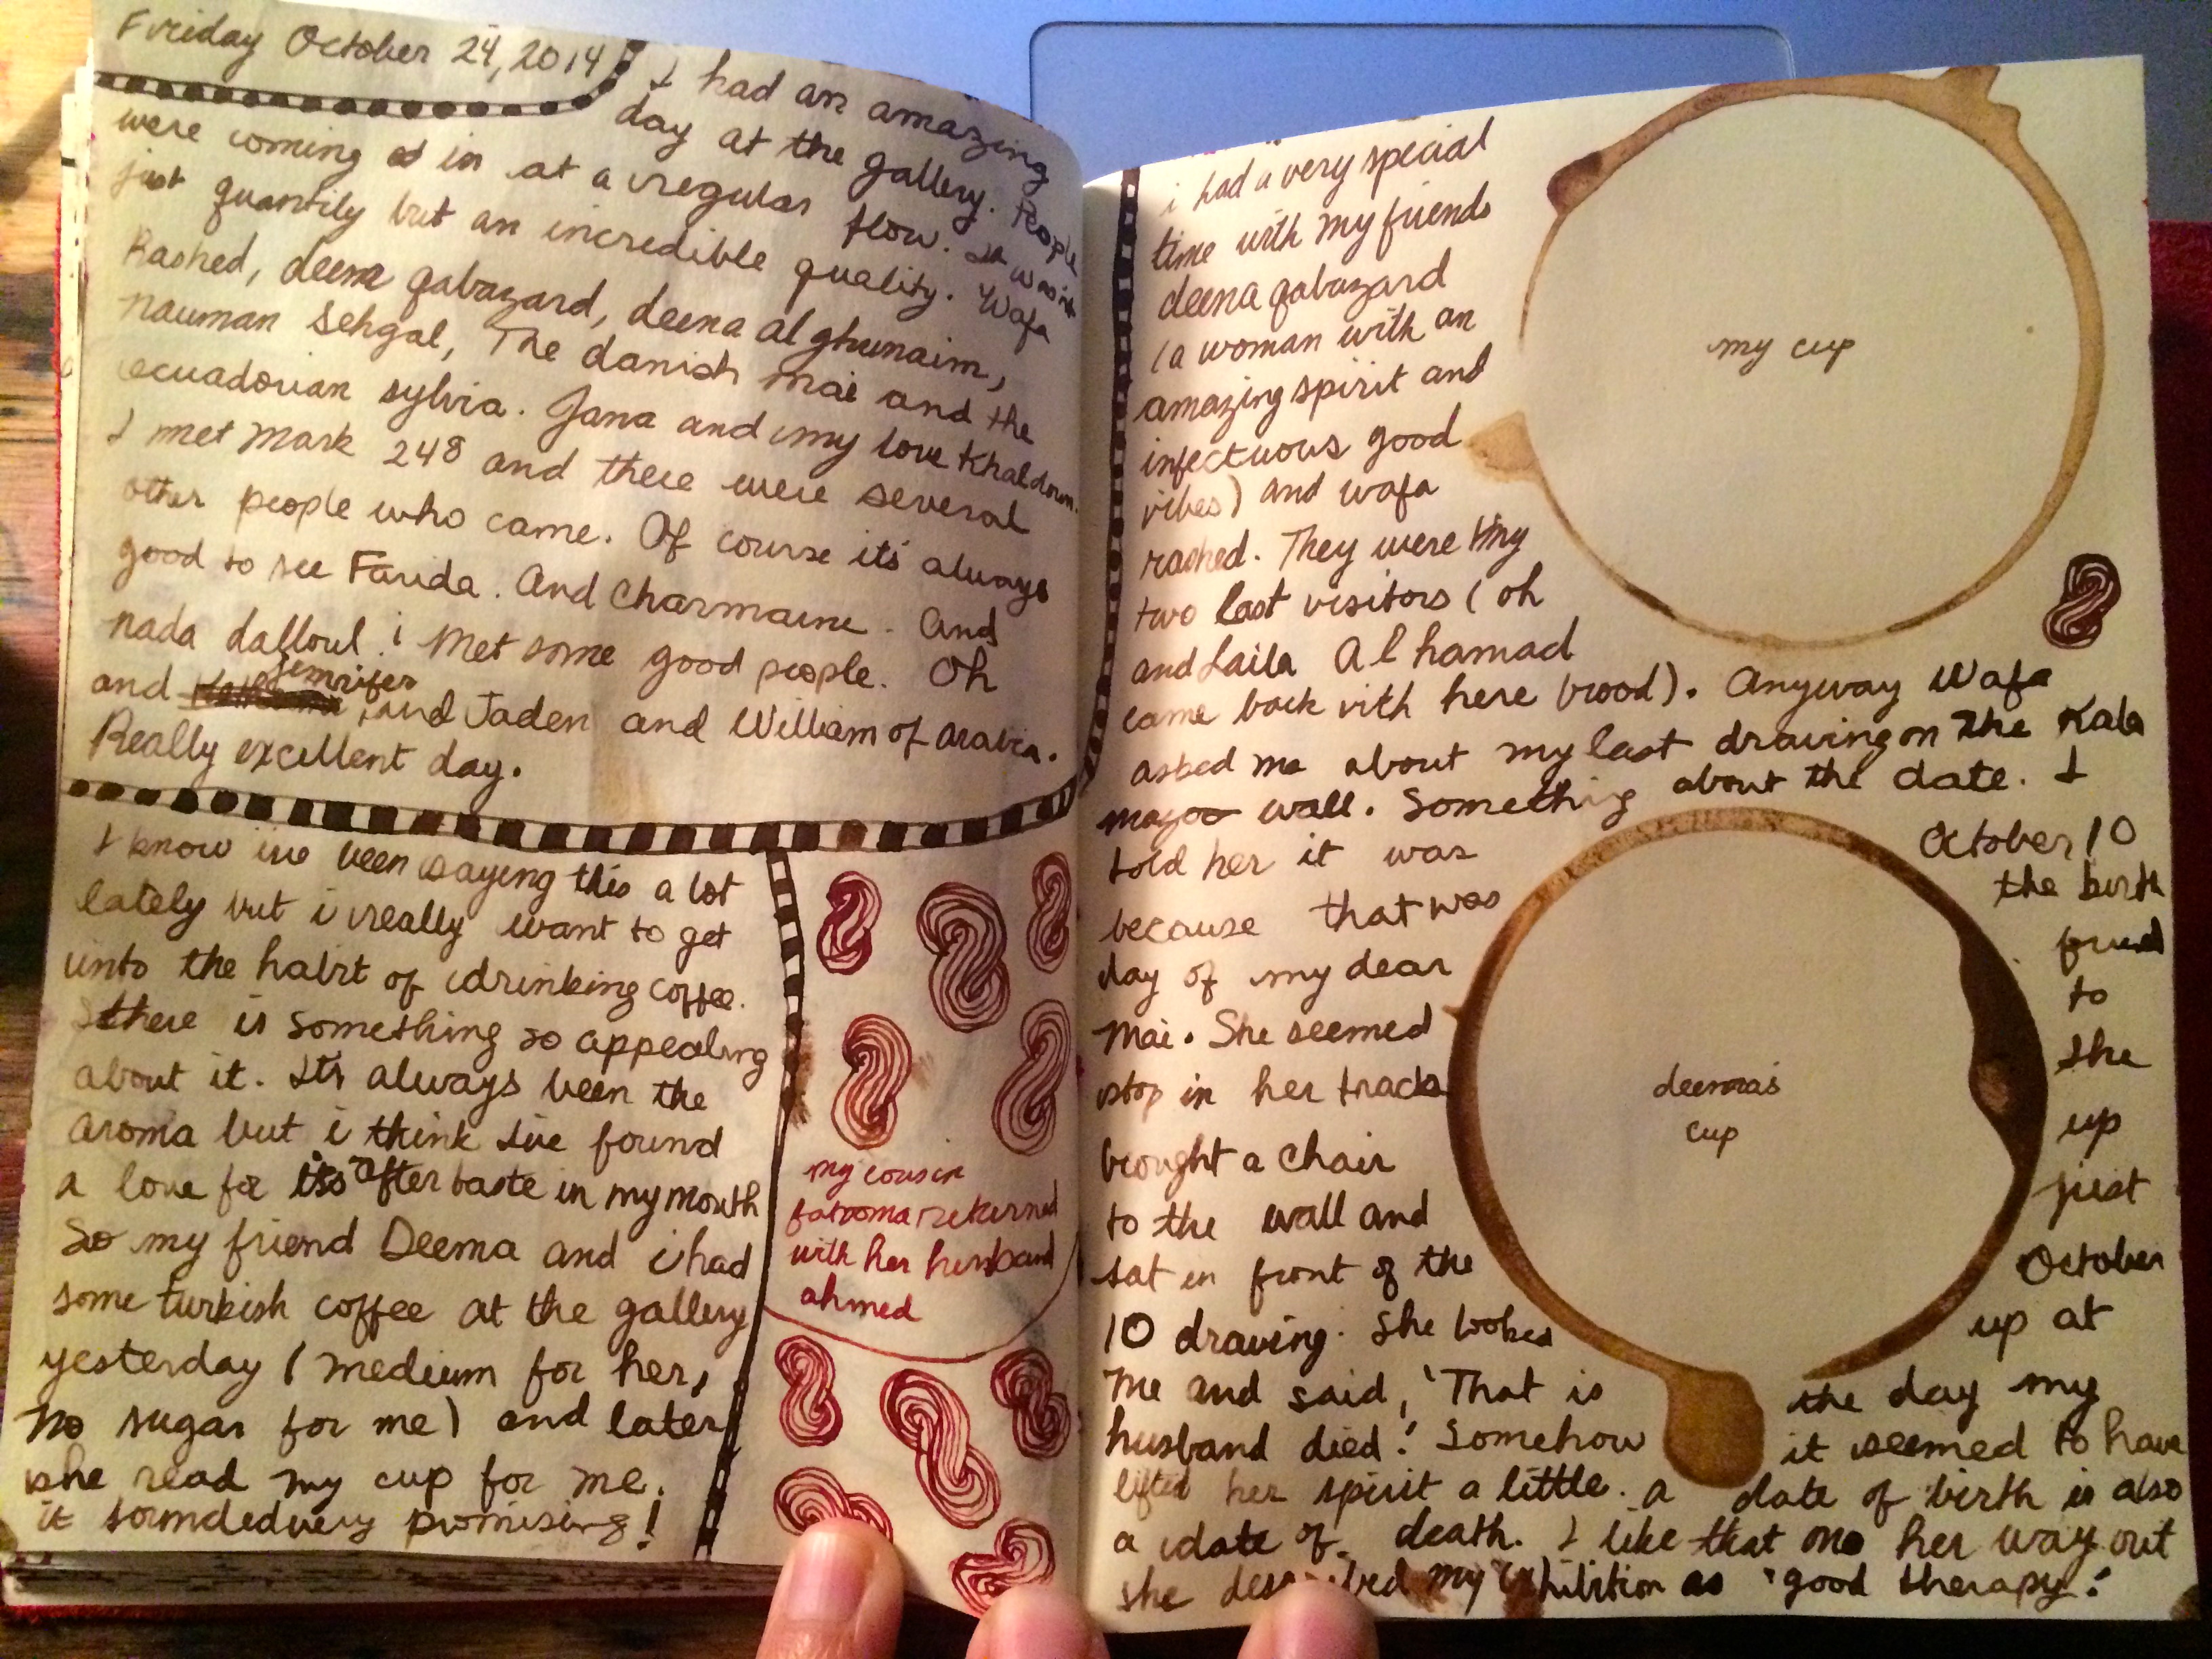 Friday October 24, 2014
I had an amazing
day at the gallery. People
were coming in at a regular flow. It wasn't
just quantity but an incredible quality. Wafa
Rashed, deena qabazard, deena al ghunaim,
nauman Sehgal, The danish mai and the
ecuadorian sylvia. Jana and my love Khaldoun.
I met Mark 248 and there were several
other people who came. Of course its always
good to see Farida. And Charmaine. And
nada dalloul. i Met some good people. Oh
and jennifer, and Jaden and William of arabia.
Really excellent day.
I know ive been saying this a lot
lately but i really want to get
into the habit of drinking coffee.
there is something so appealing
about it. Its always been the
aroma but i think Ive found
a love for its after taste in my mouth
So my friend Deema and i had
some turkish coffee at the gallery
yesterday (medium for her,
no sugar for me) and later
she read my cup for me.
it sounded very promising!
my cousin
fatooma returned
with her husband
ahmed
i had a very special
time with my friends
deena qabazard
(a woman with an
amazing spirit and
infectuous good
vibes) and wafa
rashed. They were my
two last visitors (oh
and Laila Al hamad
came back with here brood). Anyway Wafa
asked me about my last drawing on the Kala
magoo wall. Something about the date. I
told her it was October 10
because that was the birth
day of my dear friend
Mai. She seemed to
stop in her tracks she
brought a chair up
to the wall and just
sat in front of the October
10 drawing. She looked up at
me and said, 'That is the day my
husband died.' Somehow it seemed to have
lifted her spirit a little. a date of birth is also
a date of death. I like that. On her way out
she described my exhibition as 'good therapy.'
my cup
deema's
cup